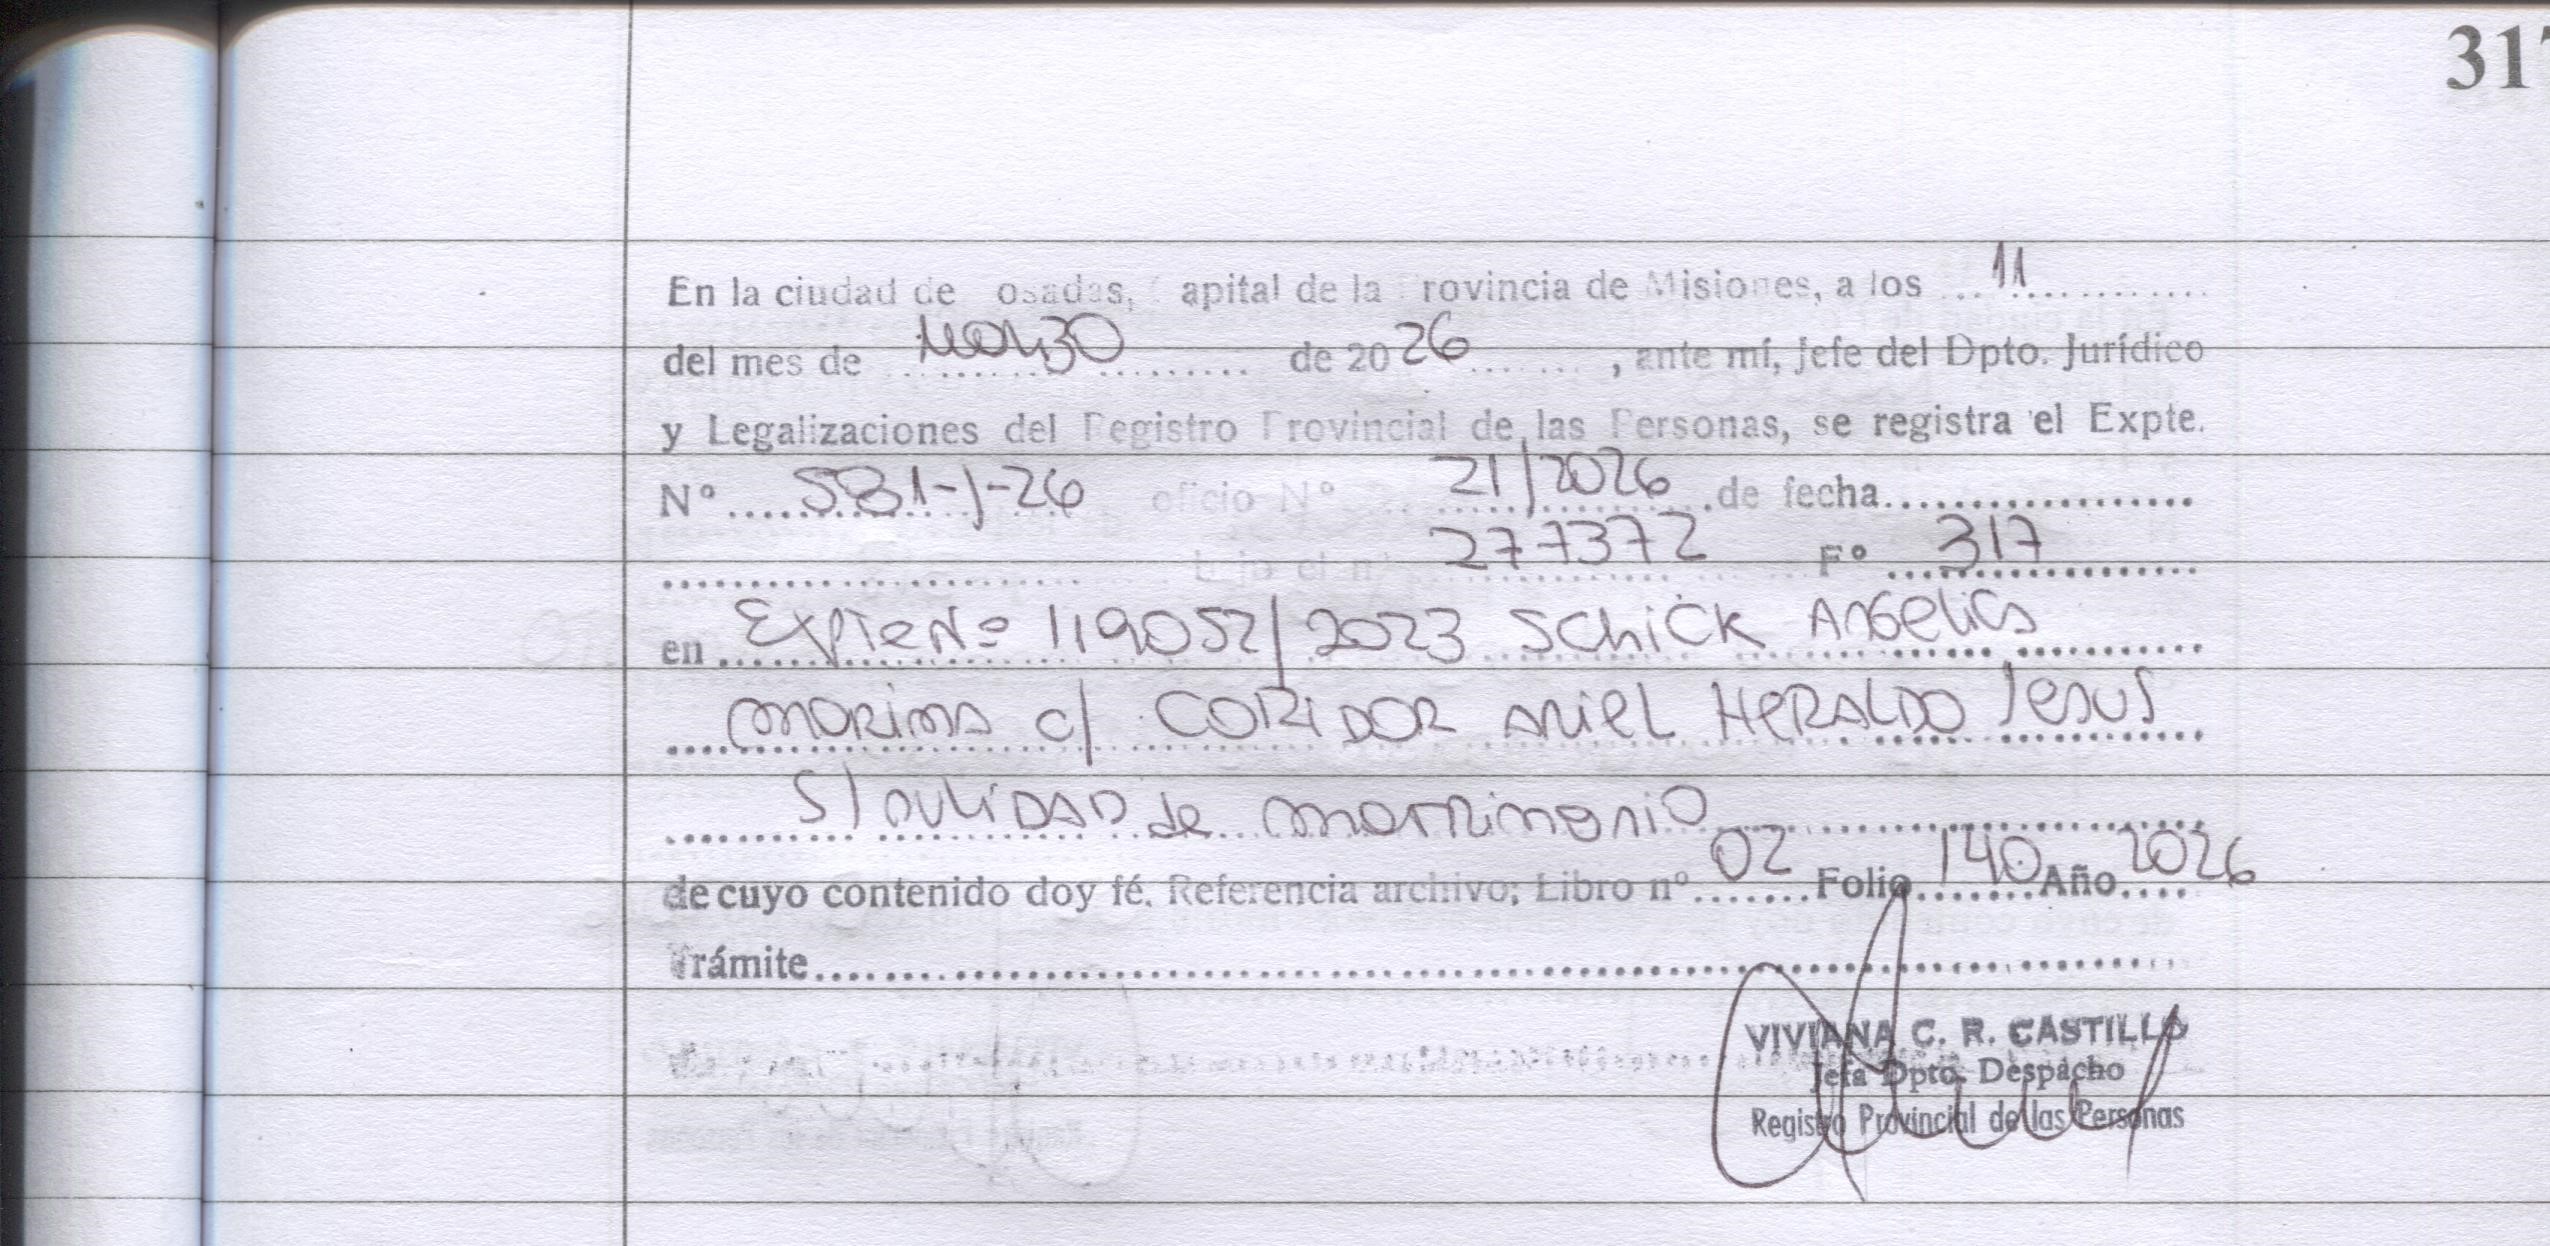 317
En la ciudad de Posadas, Capital de la Provincia de Misiones, a los 11
del mes de Marzo de 2026, ante mí, Jefe del Dpto. Jurídico
y Legalizaciones del Registro Provincial de las Personas, se registra el Expte.
Nº 581-J-26 oficio Nº 21/2026 de fecha
bajo el nº 277372 Fº 317
en Expte Nº 119052/2023 SCHICK Angelica
MARINA c/ CORIDOR ARIEL HERALDO Jesus
S/ NULIDAD de MATRIMONIO
de cuyo contenido doy fé. Referencia archivo: Libro nº 02 Folio 140 Año 2026
Trámite
VIVIANA C. R. CASTILLO
Jefa Dpto. Despacho
Registro Provincial de las Personas